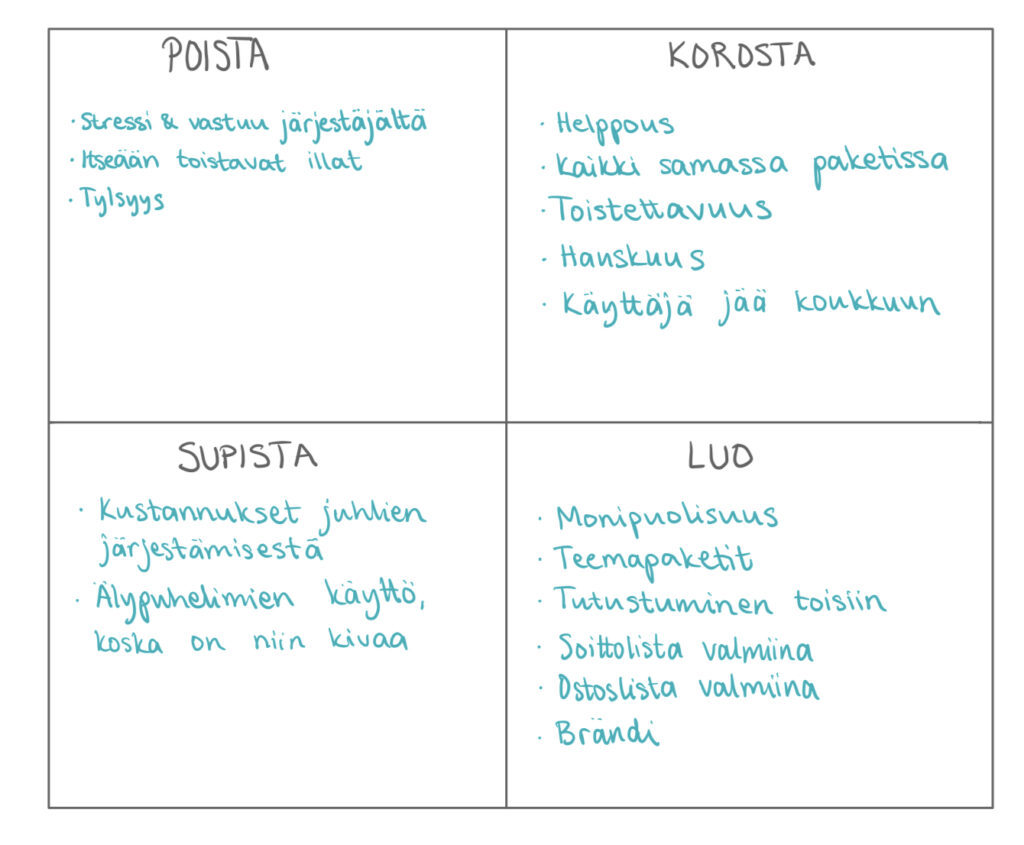 POISTA
· Stressi & vastuu järjestäjältä
· Itseään toistavat illat
· Tylsyys
KOROSTA
· Helppous
· Kaikki samassa paketissa
· Toistettavuus
· Hauskuus
· Käyttäjä jää koukkuun
SUPISTA
· Kustannukset juhlien
järjestämisestä
· Älypuhelimien käyttö,
koska on niin kivaa
LUO
· Monipuolisuus
· Teemapaketit
· Tutustuminen toisiin
· Soittolista valmiina
· Ostoslista valmiina
· Brändi